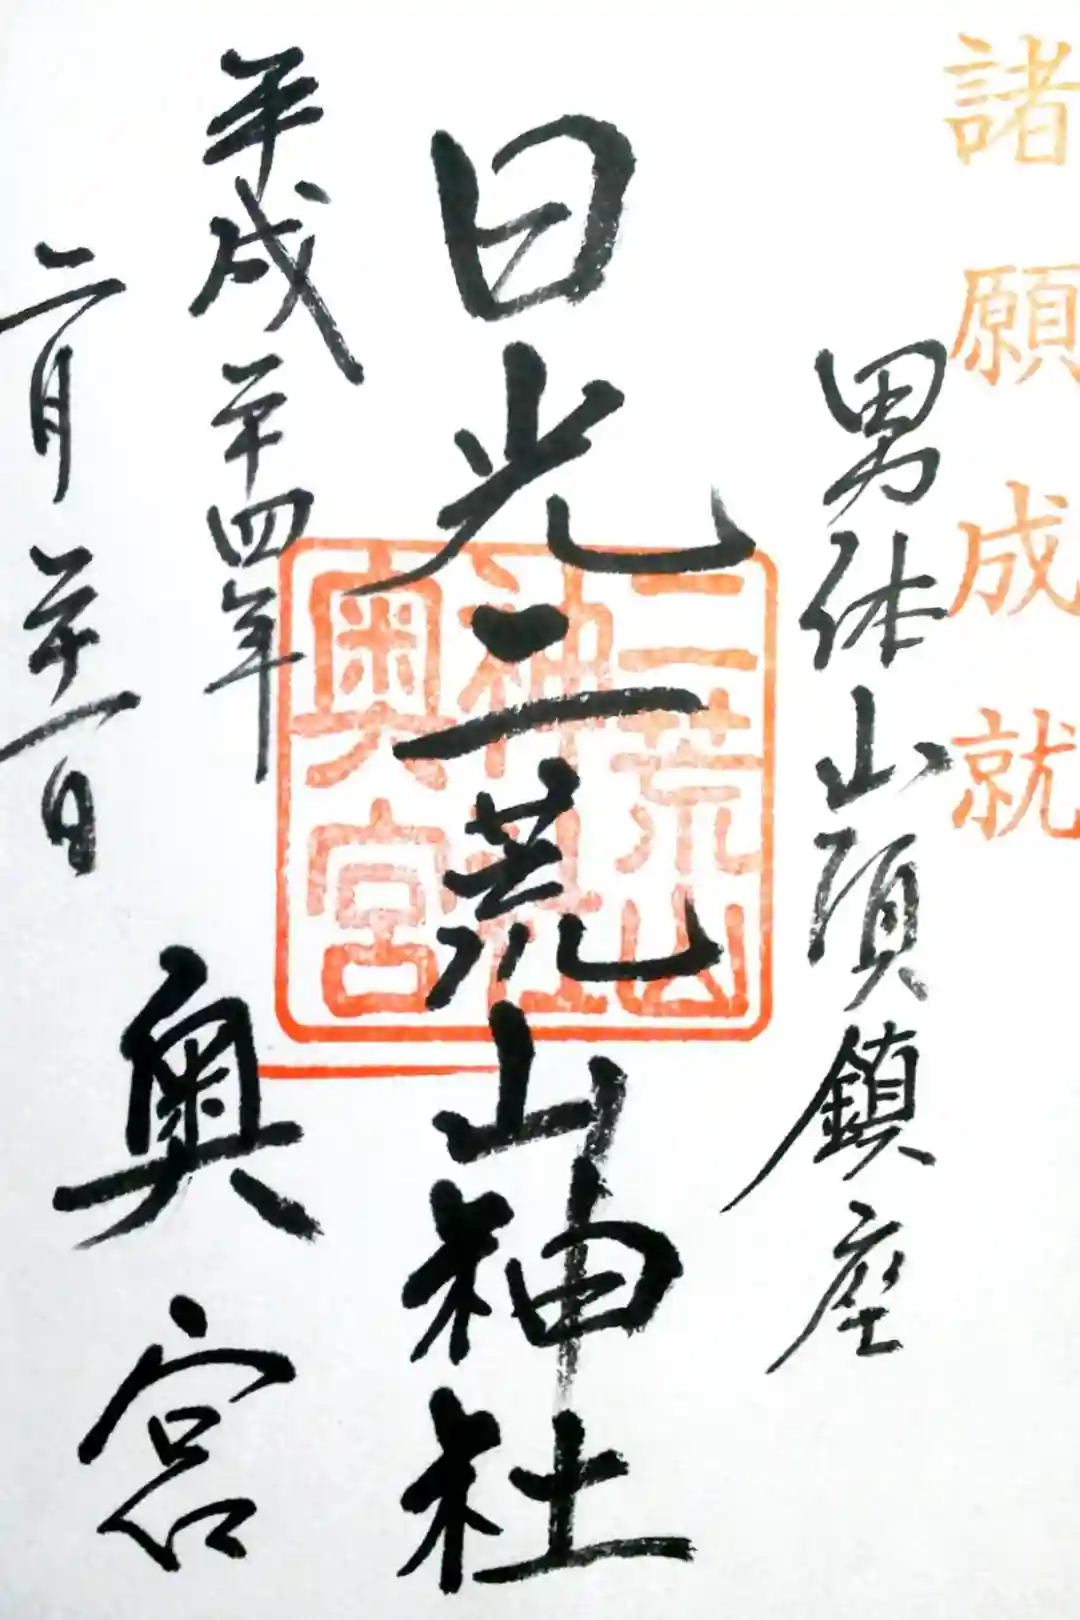 諸願成就
男体山頂鎮座
日光二荒山神社
二荒山
神社
奥宮
平成廿四年
二月廿一日
奥宮